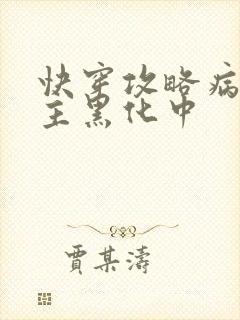 快穿攻略病
主黑化中
贾某涛